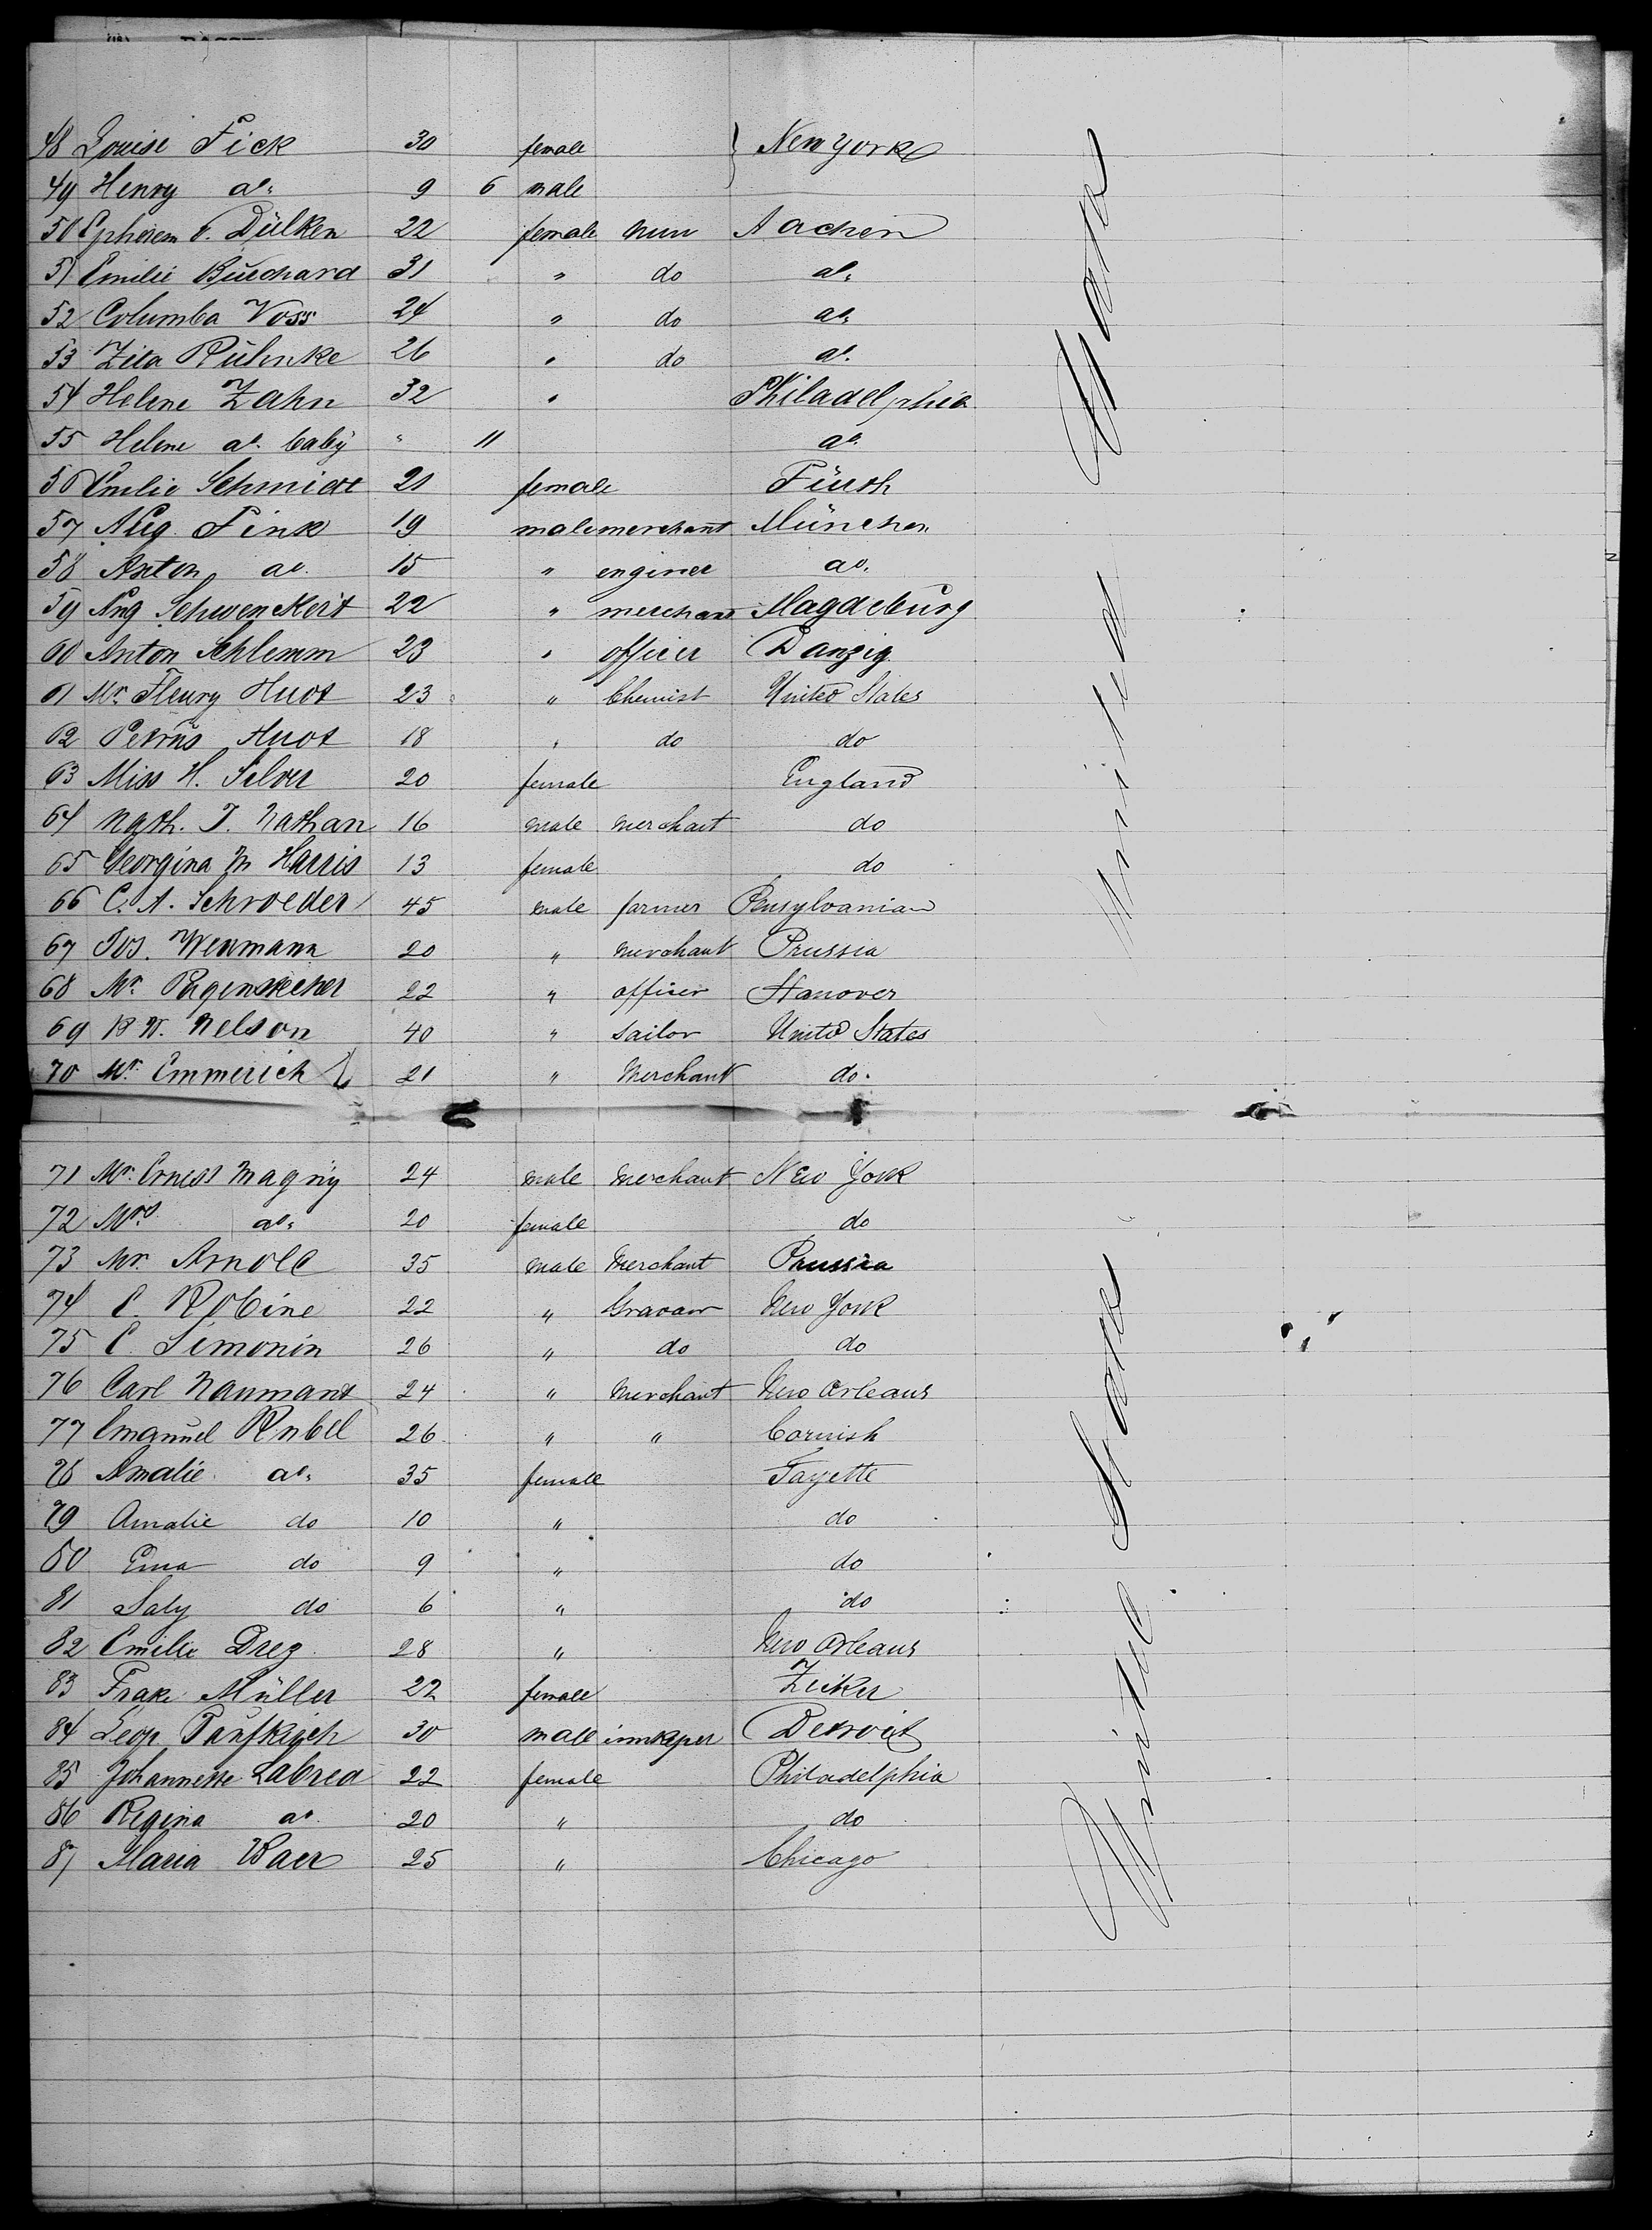 48 Louise Fick 30 female } New York
49 Henry do. 9 6 male
50 Ephrem v. Dülken 22 female nun Aachen
51 Emilie Burchard 31 " do do.
52 Columba Voss 24 " do do.
53 Zita 26 " do do.
54 Helene Zahn 32 " Philadelphia
55 Helene do. baby " 11 do.
56 Emilie Schmidt 21 female Fürth
57 Aug. Fink 19 male merchant München
58 Anton do. 15 " enginer do.
59 Aug Schwenckert 22 " merchant Magdeburg
60 Anton Schlemm 23 " officer Danzig
61 Mr. Fleury Huot 23 " Chemist United States
62 Petrus Huot 18 " do do
63 Miss H. Silver 20 female England
64 Nath. J. Nathan 16 male merchant do
65 Georgina M Harris 13 female do
66 C. A. Schroeder 45 male farmer Pensylvanian
67 Jos. Wenmann 20 " merchant Prussia
68 Mr. Pagenstecher 22 " officer Hanover
69 B W. Nelson 40 " Sailor United States
70 Mr. Emmerich 21 " Merchant do.
71 Mr. Ernest Magny 24 male Merchant New York
72 Mrs. do. 20 female do
73 Mr. Arnold 35 male Merchant Prussia
74 E. Robine 22 " New York
75 E. Simonin 26 " do do
76 Carl Naumant 24 " merchant New Orleans
77 Emanuel Rubel 26 " " Cornish
78 Amalie do. 35 female Fayette
79 Amalie do 10 " do
80 Ema do 9 " do
81 Saly do 6 " do
82 Emilie Drez 28 " New Orleans
83 Müller 22 female
84 Leop. Taufkirch 30 male innkeper Detroit
85 Johannette Labred 22 female Philadelphia
86 Regina do. 20 " do
87 Maria Baer 25 " Chicago
United State
United State